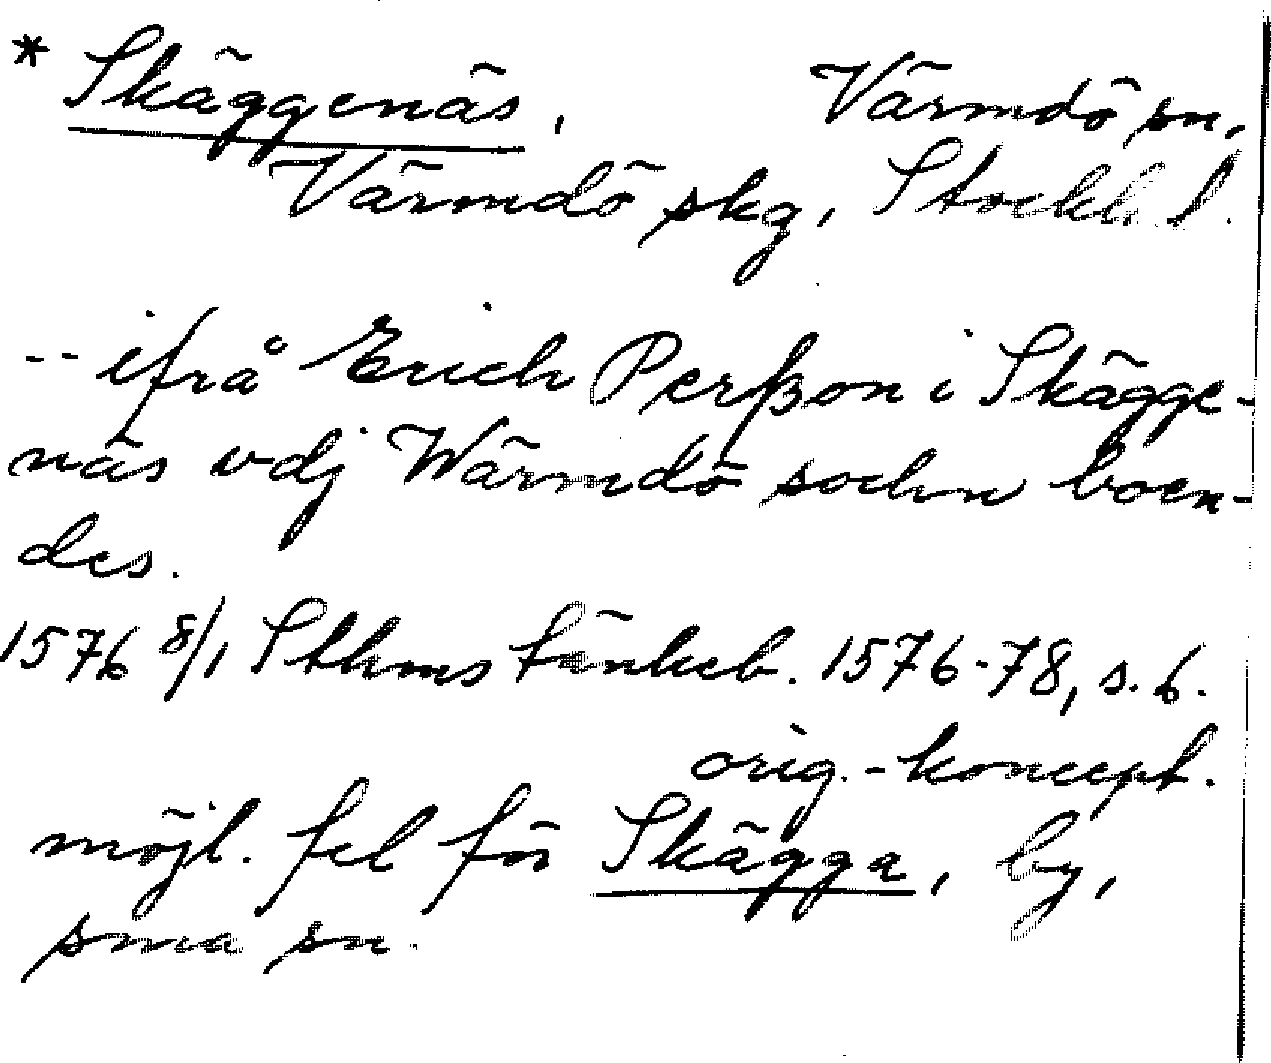 * Skäggenäs, Värmdö sn,
Värmdö skg, Stockh. l.
-- ifrå Erich Perßon i Skägge-
näs vdj Wärmdö sochn boen-
des.
1576 8/1 Sthms tänkeb. 1576-78, s. 6.
orig.-koncept.
möjl. fel för Skägga, by,
sma sn.